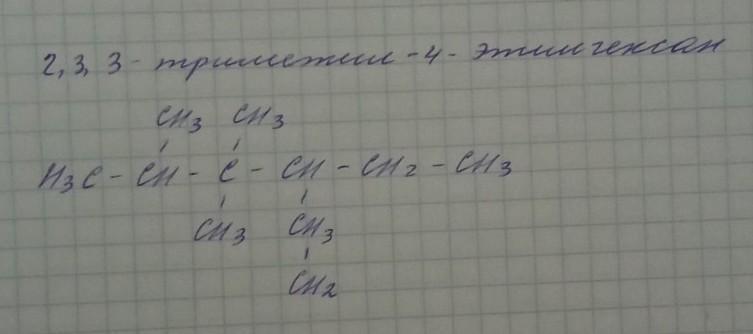 2,3,3-триметил-4-этилгексан
CH3 CH3
H3C - CH - C - CH - CH2 - CH3
CH3 CH3
CH2